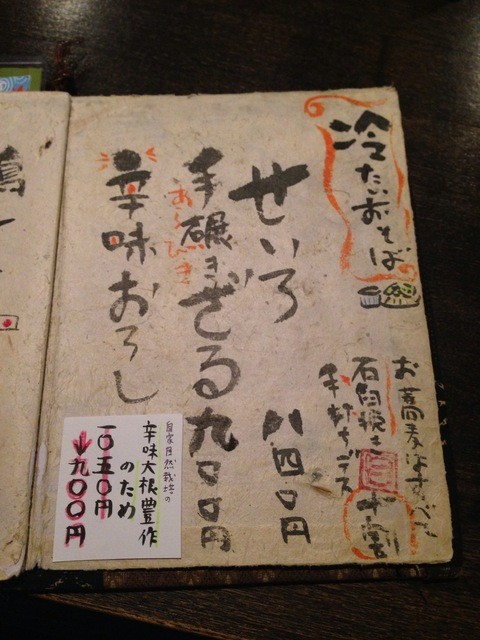 冷たいおそば
お蕎麦はすべて
石臼挽き 十割
手打ちデス
せいろ 八四〇円
手碾きざる 九〇〇円
あらびき
辛味おろし
自家自然栽培の
辛味大根豊作
のため
一〇五〇円
↓九〇〇円